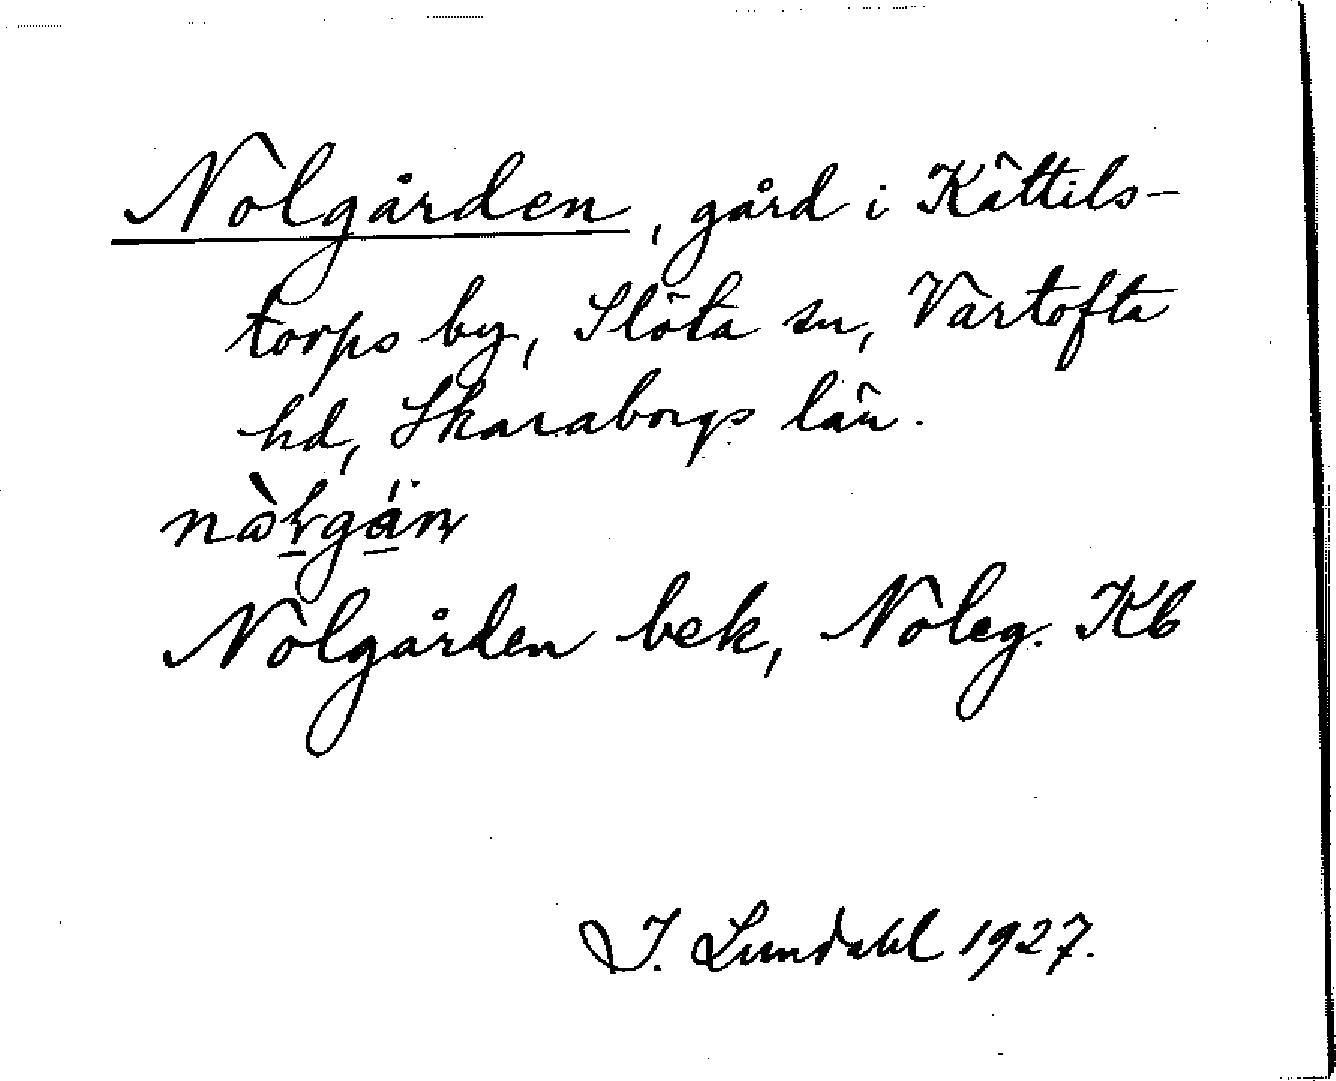 Nolgården, gård i Kättils-
torps by, Slöta sn, Vartofta
hd, Skaraborgs län.
Nolgården bek, Noleg. Kb
I. Lundahl 1927.